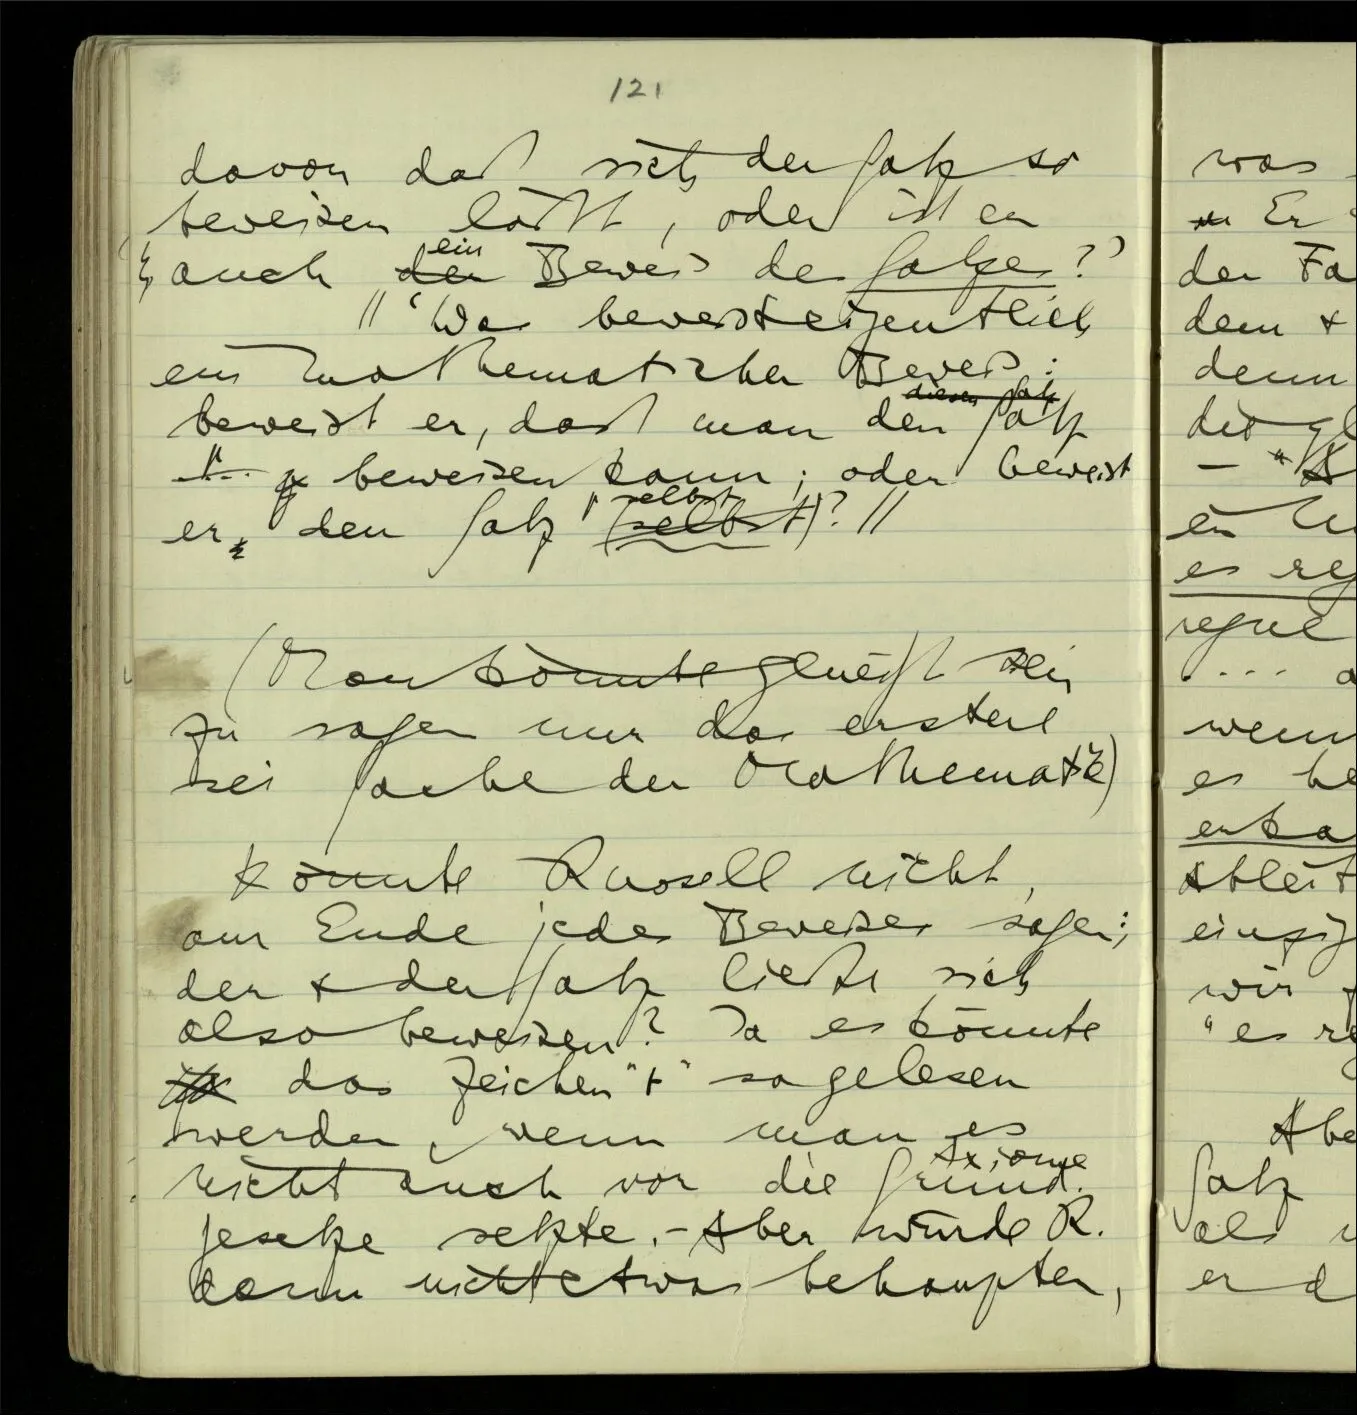 121
davon daß sich der Satz so
beweisen läßt, oder ist er
auch der ein Beweis des Satzes?"
// "Was beweist eigentlich
ein mathematischer Beweis:
diesen Satz
beweist er, daß man den Satz
beweisen kann; oder beweist
er, den Satz (selbst) selbst? //
(Man könnte geneigt sein
zu sagen nur das erstere
sei Sache der Mathematik)
Könnte Russell nicht,
am Ende jedes Beweises sagen;
der & der Satz ließe sich
also beweisen? Ja es könnte
das Zeichen "⊢" so gelesen
werden, wenn man es
nicht auch vor die Grund- Axiome
gesetze setzte. – Aber würde R.
dann nicht etwas behaupten,
was
Er
der Fa
dem +
denn
die gl
– "
ein
es reg
regne
....
wenn
es be
erka
Ableit
einzig
wir
"es re
Abe
Satz
als
er d